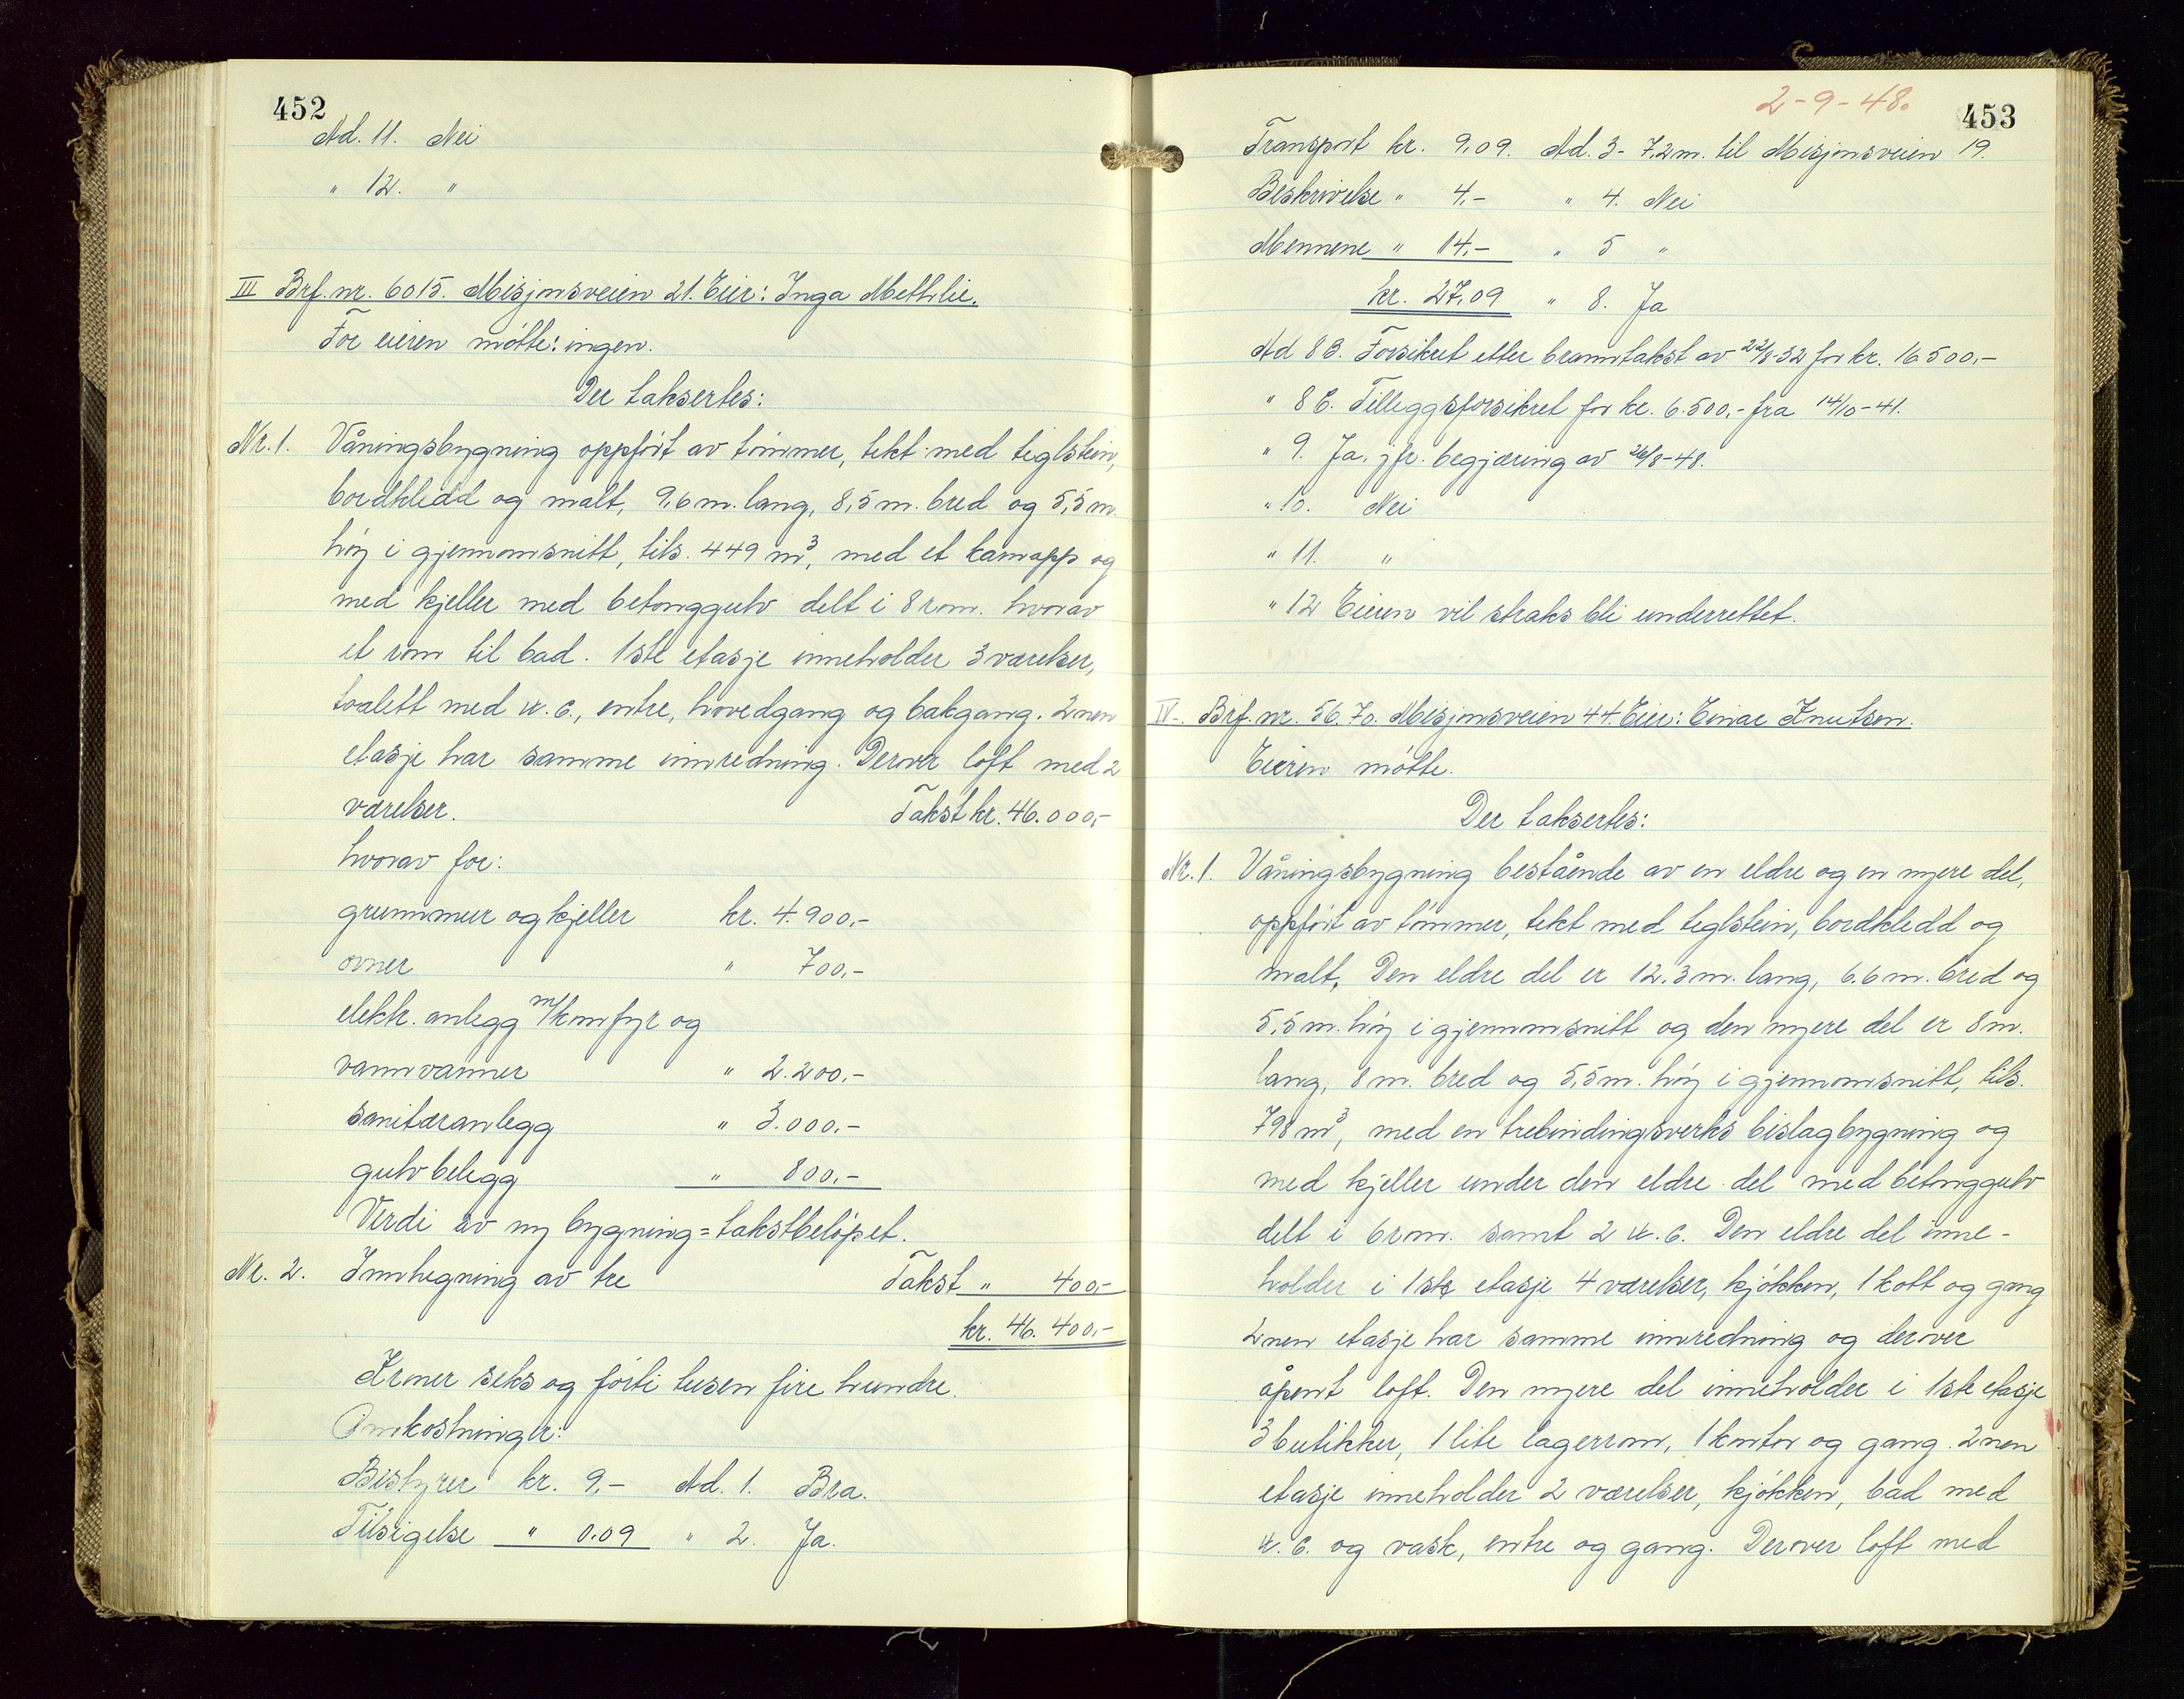 452
Ad. 11. Nei
" 12. "
III Brf. nr. 6015. Misjonsveien 21. Eier: Inga Methlie.
For eieren møtte: ingen.
Der taksertes:
Nr. 1. Våningsbygning oppført av tømmer, tekt med teglstein,
bordkledd og malt, 9,6 m. lang, 8,5 m. bred og 5,5 m.
høy i gjennomsnitt, tils. 449 m³, med et karnapp og
med kjeller med betonggulv delt i 8 rom. hvorav
et rom til bad. 1ste etasje inneholder 3 værelser,
toalett med w.c., entre, hovedgang og bakgang. 2nen
etasje har samme innredning. Derover loft med 2
værelser. Takst kr. 46.000,-
hvorav for:
grunnmur og kjeller kr. 4.900,-
ovner " 700,-
elektr. anlegg m/komfyr og
vannvarmer " 2.200,-
sanitæranlegg " 3.000,-
gulvbelegg " 800,-
Verdi av ny bygning = takstbeløpet.
Nr. 2. Innhegning av tre Takst " 400,-
kr. 46.400,-
Kroner seks og førti tusen fire hundre.
Omkostninger:
Bistyrer kr. 9,- Ad. 1. Bra.
Tilsigelse " 0.09 " 2. Ja.
2-9-48. 453
Transport kr. 9,09. Ad. 3- 7,2 m. til Misjonsveien 19.
Beskrivelse " 4,- " 4. Nei
Mennene " 14,- " 5 "
kr. 27,09 " 8. Ja
Ad 8 B. Forsikret etter branntakst av 22/8-32 for kr. 16500,-
" 8 C. Tilleggsforsikret for kr. 6.500,- fra 14/10-41.
" 9. Ja, jfr. begjæring av 26/8-48.
" 10. Nei
" 11. "
" 12 Eieren vil straks bli underrettet.
IV. Brf. nr. 56.70. Misjonsveien 44. Eier: Einar Knutsen.
Eieren møtte.
Der taksertes:
Nr. 1. Våningsbygning bestående av en eldre og en nyere del,
oppført av tømmer, tekt med teglstein, bordkledd og
malt, Den eldre del er 12.3 m. lang, 6.6 m. bred og
5,5 m. høy i gjennomsnitt og den nyere del er 8 m.
lang, 8 m. bred og 5,5 m. høy i gjennomsnitt, tils.
798 m³, med en trebindingsverks bislagbygning og
med kjeller under den eldre del med betonggulv
delt i 6 rom. samt 2 w.c. Den eldre del inne-
holder i 1ste etasje 4 værelser, kjøkken, 1 kott og gang
2nen etasje har samme innredning og derover
åpent loft. Den nyere del inneholder i 1ste etasje
3 butikker, 1 lite lagerrom, 1 kontor og gang. 2nen
etasje inneholder 2 værelser, kjøkken, bad med
w.c. og vask, entre og gang. Derover loft med